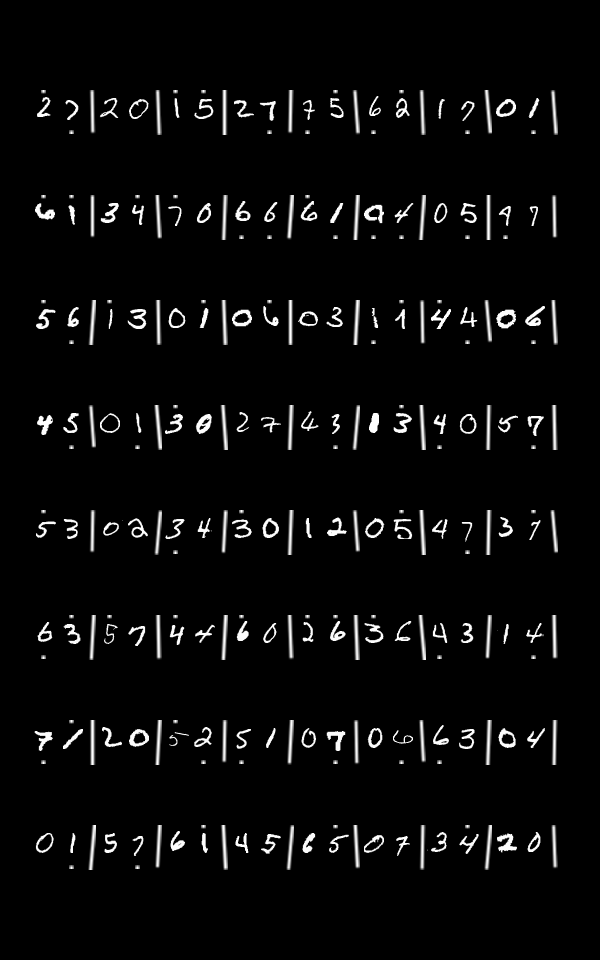 2̇ 7̣ | 2 0 | 1̇ 5̇ | 2 7̣ | 7̣ 5̇ | 6̣ 2̇ | 1 7̣ | 0 1̣ |
6̇ 1̇ | 3 4̇ | 7̇ 0 | 6̣ 6̣ | 6̇ 1̣ | 2̣ 4̣ | 0 5̣ | 4̣ 7 |
5̇ 6̣ | 1̇ 3 | 0 1̇ | 0 6̇ | 0 3 | 1̣ 1̇ | 4̇ 4̣ | 0 6̣ |
4 5̣ | 0 1̣ | 3̇ 0 | 2 7 | 4 3̣ | 1 3̇ | 4̣ 0 | 5 7̣ |
5̇ 3 | 0 2 | 3̣ 4 | 3̇ 0 | 1 2 | 0 5̇ | 4 7̣ | 3 7̇ |
6̣ 3 | 5̇ 7 | 4̇ 4 | 6̇ 0 | 2̇ 6̇ | 3̇ 6 | 4̣ 3 | 1 4̣ |
7̣ 1̇ | 2 0 | 5̇ 2̣ | 5̣ 1 | 0 7̣ | 0 6̣ | 6̣ 3 | 0 4 |
0 1̣ | 5 7̣ | 6 1̇ | 4 5 | 6 5̇ | 0 7 | 3 4̇ | 2 0 |